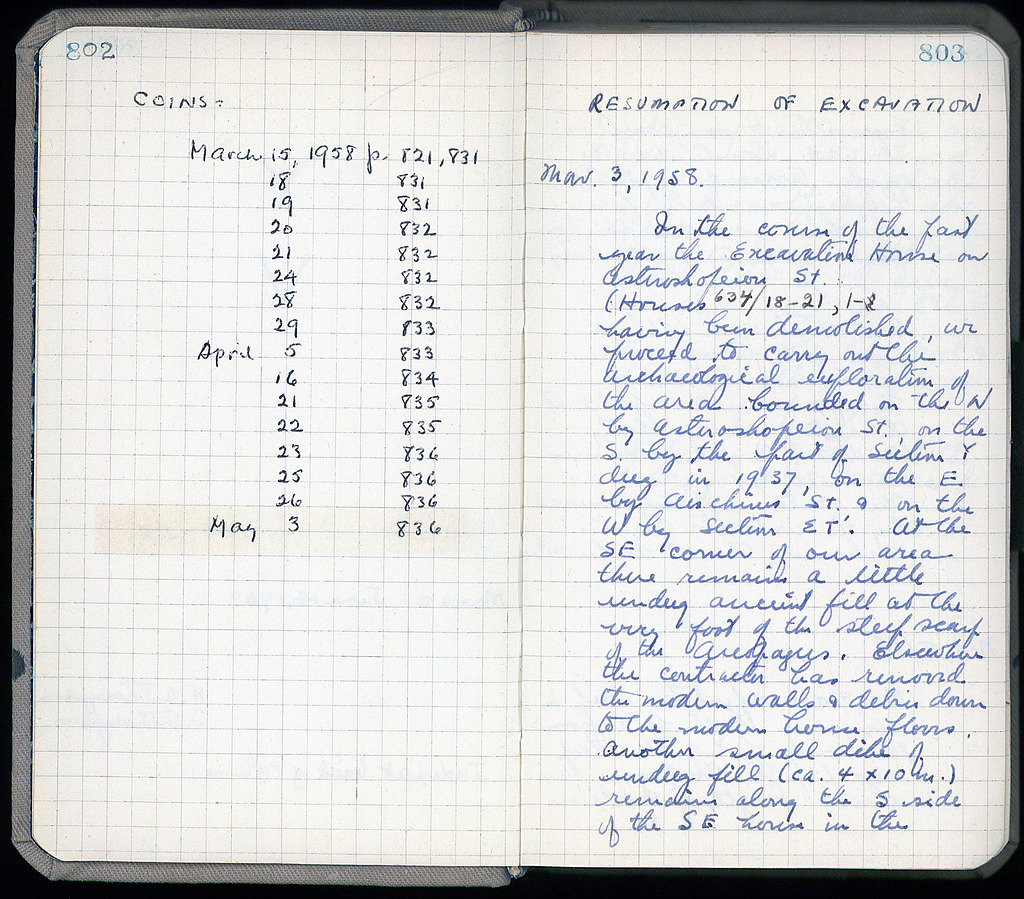 802
COINS:
March 15, 1958 p. 821, 831
18 831
19 831
20 832
21 832
24 832
28 832
29 833
April 5 833
16 834
21 835
22 835
23 836
25 836
26 836
May 3 836
803
RESUMPTION OF EXCAVATION
Mar. 3, 1958.
In the course of the past
year the Excavation House on
Asteroskopeion St.
(Houses 634/18-21, 1-2
having been demolished, we
proceed to carry out the
archaeological exploration of
the area bounded on the N
by Asteroskopeion St., on the
S. by the part of Section Υ
dug in 1937, on the E
by Aischines St. & on the
W by Section ΣΤ'. At the
SE corner of our area
there remains a little
undug ancient fill at the
very foot of the steep scarp
of the Areopagus. Elsewhere
the contractor has removed
the modern walls & debris down
to the modern house floors.
Another small dike of
undug fill (ca. 4 x 10 m.)
remains along the S side
of the SE house in the